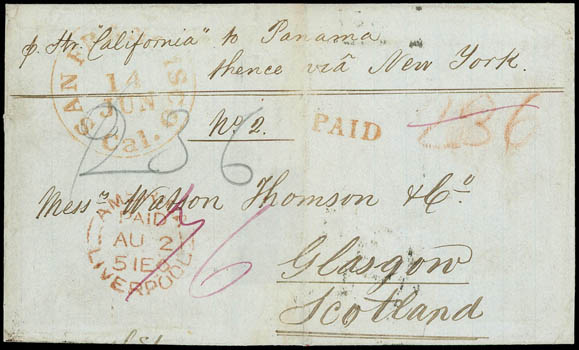 p. Str. "California" to Panama
thence viâ New York.
SAN FRA
14
JUN
Cal.
No. 2.
PAID
236
Messrs Watson Thomson & Co
AM
PAID
AU 2
51
LIVERPOOL
36
Glasgow
Scotland